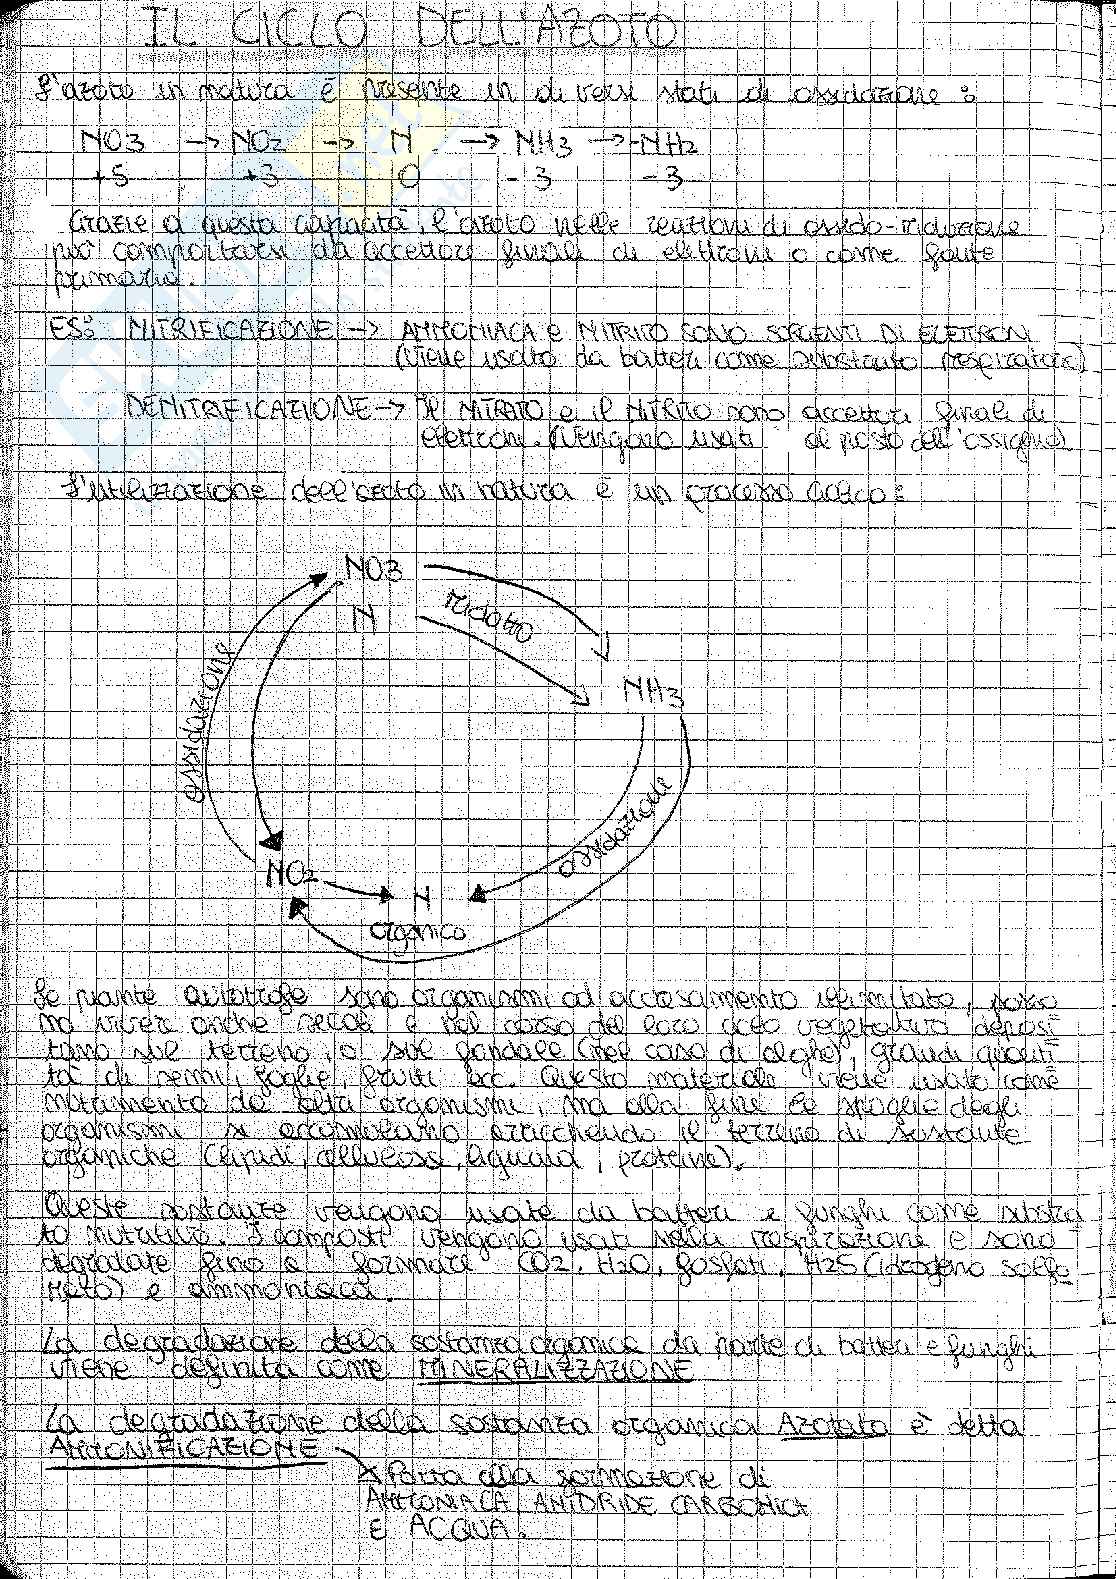 IL CICLO DELL'AZOTO
L'azoto in natura è presente in diversi stati di ossidazione:
NO3 → NO2 → N → NH3 → -NH2
+5 +3 0 -3 -3
Grazie a questa capacità, l'azoto nelle reazioni di ossido-riduzione
può comportarsi da accettore finale di elettroni o come fonte
primaria.
ES: NITRIFICAZIONE → AMMONIACA e NITRITO SONO SORGENTI DI ELETTRONI
(viene usato da batteri come substrato respiratorio)
DENITRIFICAZIONE → Il NITRATO e il NITRITO sono accettori finali di
elettroni. (Vengono usati al posto dell'ossigeno)
L'utilizzazione dell'azoto in natura è un processo ciclico:
NO3
N
ridotto
NH3
ossidazione
ossidazione
NO2
N
organico
Le piante autotrofe sono organismi ad accrescimento illimitato, posso
no vivere anche secoli e nel corso del loro ciclo vegetativo deposi
tano sul terreno, o sul fondale (nel caso di alghe), grandi quanti
tà di semi, foglie, frutti ecc. Questo materiale viene usato come
nutrimento da altri organismi, ma alla fine le spoglie degli
organismi si accumulano arricchendo il terreno di sostanze
organiche (lipidi, cellulosa, lignina, proteine).
Queste sostanze vengono usate da batteri e funghi come substra
to nutritivo. I composti vengono usati nella respirazione e sono
degradate fino a formare CO2, H2O, fosfati, H2S (idrogeno solfo
rato) e ammoniaca.
La degradazione della sostanza organica da parte di batteri e funghi
viene definita come MINERALIZZAZIONE
La degradazione della sostanza organica Azotata è detta
AMMONIFICAZIONE
Porta alla formazione di
AMMONIACA, ANIDRIDE CARBONICA
E ACQUA.